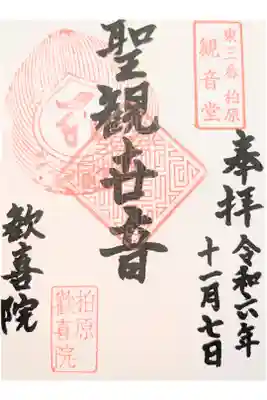 東三番 柏原
観音堂
奉拝
令和六年
十一月七日
聖観世音
歓喜院
柏原
歡喜院